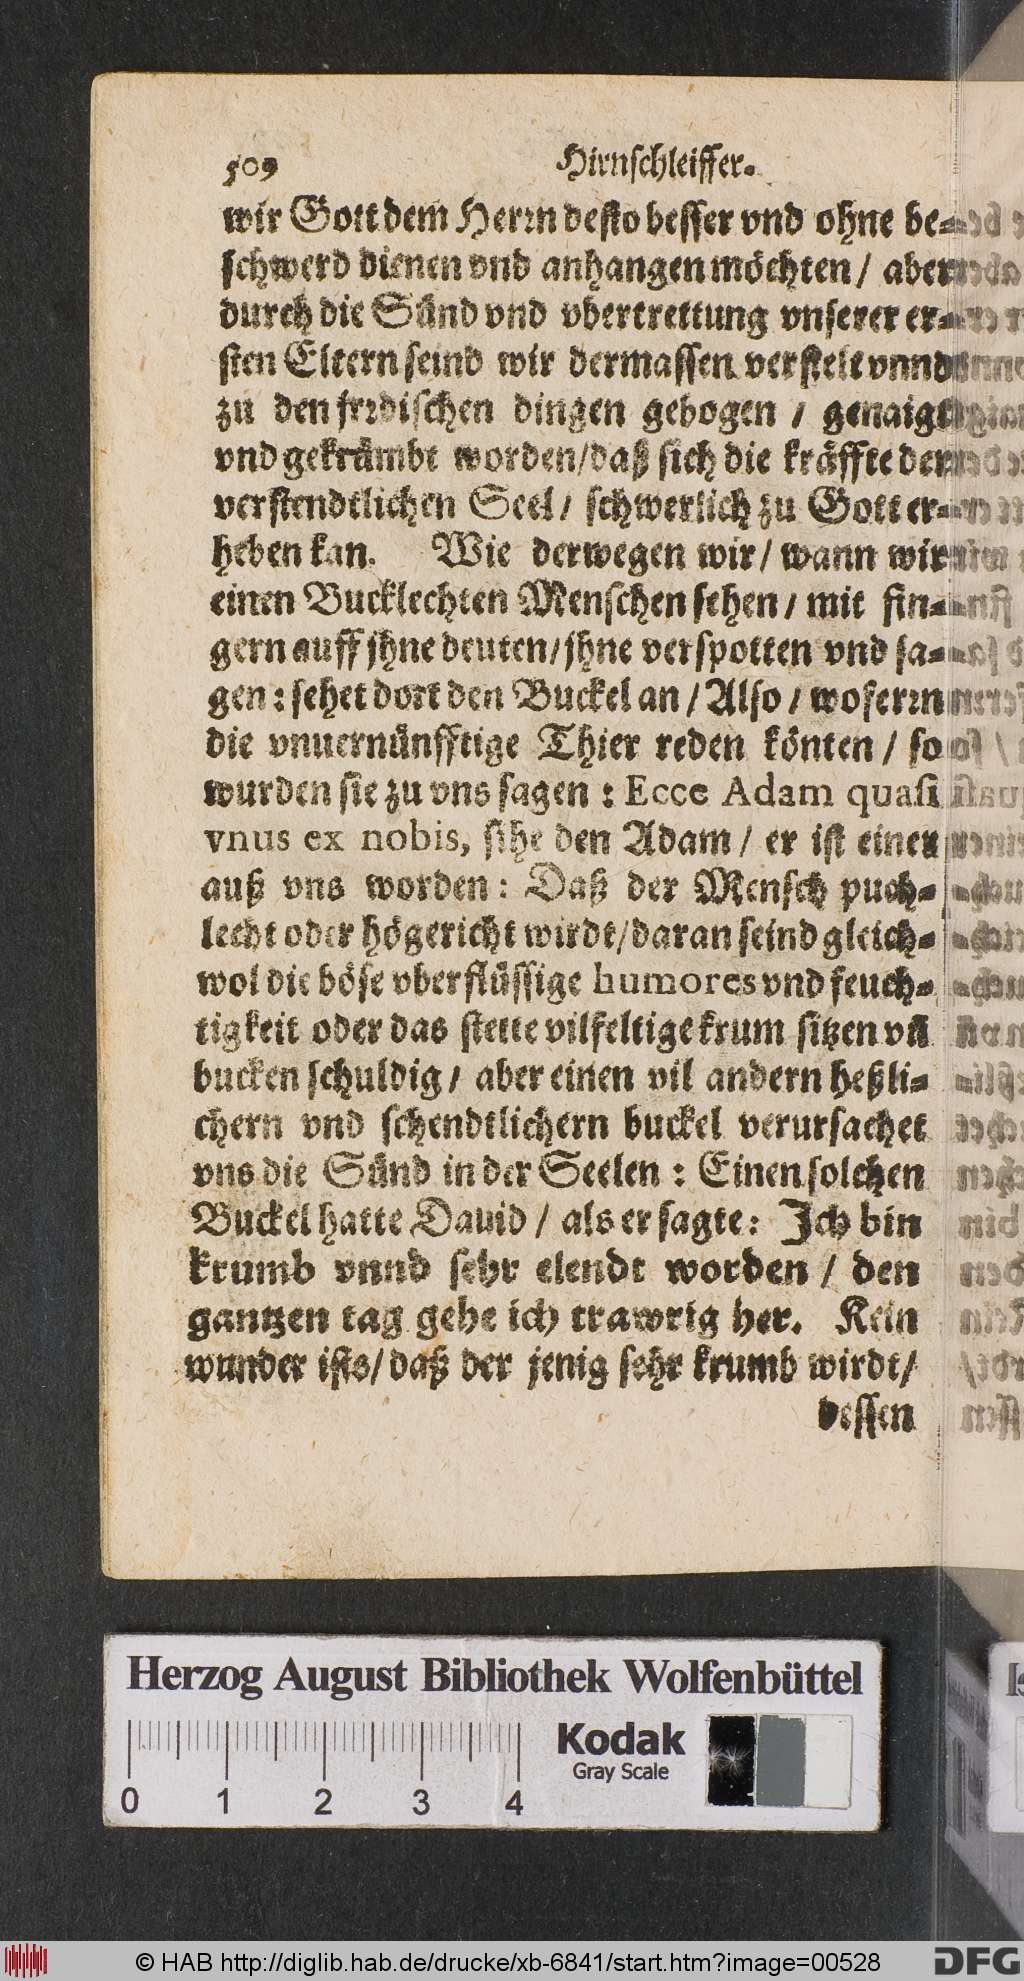 509 Hirnschleiffer.
wir Gott dem Herrn desto besser vnd ohne be-
schwerd dienen vnd anhangen möchten / aber
durch die Sünd vnd vbertrettung vnserer er-
sten Eltern seind wir dermassen verstelt vnnd
zu den jrrdischen dingen gebogen / genaigt
vnd gekrümbt worden/daß sich die kräffte der
verstendtlichen Seel / schwerlich zu Gott er-
heben kan. Wie derwegen wir / wann wir
einen Bucklechten Menschen sehen / mit fin-
gern auff jhne deuten/jhne verspotten vnd sa-
gen : sehet dort den Buckel an / Also / wofern
die vnuernünfftige Thier reden könten / so
wurden sie zu vns sagen : Ecce Adam quasi
vnus ex nobis, sihe den Adam / er ist einer
auß vns worden : Daß der Mensch puch-
lecht oder högericht wirdt/daran seind gleich-
wol die böse vberflüssige humores vnd feuch-
tigkeit oder das stette vilfeltige krum sitzen vñ
bucken schuldig / aber einen vil andern heßli-
chern vnd schendtlichern buckel verursachet
vns die Sünd in der Seelen : Einen solchen
Buckel hatte Dauid / als er sagte: Jch bin
krumb vnnd sehr elendt worden / den
gantzen tag gehe ich trawrig her. Kein
wunder ists/daß der jenig sehr krumb wirdt/
dessen
Herzog August Bibliothek Wolfenbüttel
Kodak
Gray Scale
0 1 2 3 4
© HAB http://diglib.hab.de/drucke/xb-6841/start.htm?image=00528
DFG